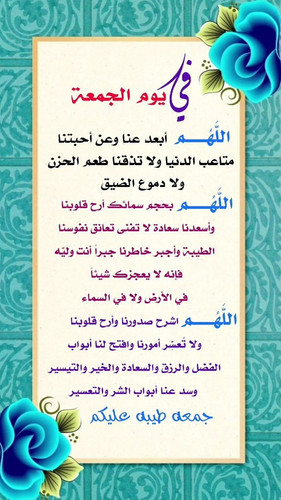 في يوم الجمعة
اللَّهُـم أبعد عنا وعن أحبتنا
متاعب الدنيا ولا تذقنا طعم الحزن
ولا دموع الضيق
اللَّهُـم بحجم سمائك أرح قلوبنا
وأسعدنا سعادة لا تفنى تعانق نفوسنا
الطيبة وأجبر خاطرنا جبراً أنت وليّه
فإنه لا يعجزك شيئاً
في الأرض ولا في السماء
اللَّهُـم اشرح صدورنا وأرح قلوبنا
ولا تُعسّر أمورنا وافتح لنا أبواب
الفضل والرزق والسعادة والخير والتيسير
وسد عنا أبواب الشر والتعسير
جمعه طيبه عليكم